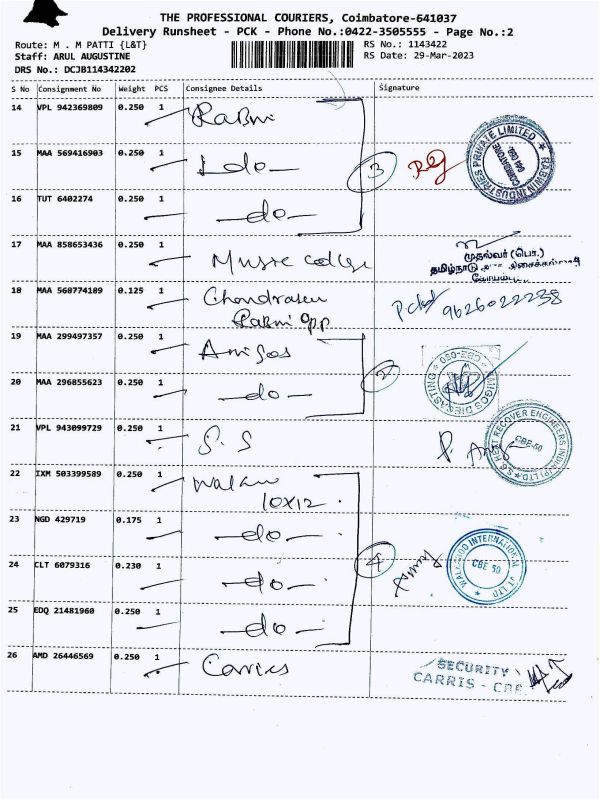 THE PROFESSIONAL COURIERS, Coimbatore-641037
Delivery Runsheet - PCK - Phone No.:0422-3505555 - Page No.:2
Route: M . M PATTI {L&T}
RS No.: 1143422
Staff: ARUL AUGUSTINE
RS Date: 29-Mar-2023
DRS No.: DCJB114342202
S No Consignment No Weight PCS Consignee Details Signature
14 VPL 942369809 0.250 1 Rabwi
15 MAA 569416903 0.250 1 - do -
3
RABWIN INDUSTRIES PRIVATE LIMITED
COIMBATORE
641 050.
16 TUT 6402274 0.250 1 - do -
17 MAA 858653436 0.250 1 Music college
முதல்வர் (பொ.)
தமிழ்நாடு
கோயம்
18 MAA 560774189 0.125 1 Chandrasen
Rabwi opp
9626022238
19 MAA 299497357 0.250 1 Amigos
2
AMIGOS DIECASTING
CBE-050
20 MAA 296855623 0.250 1 - do -
21 VPL 943099729 0.250 1 S. S
HEAT RECOVER ENGINEERS INDIA (P) LTD
CBE-50
22 IXM 503399589 0.250 1
10x12
23 NGD 429719 0.175 1 - do -
24 CLT 6079316 0.230 1 - do -
4
INTERNATIONAL PVT LTD
CBE 50
25 EDQ 21481960 0.250 1 - do -
26 AMD 26446569 0.250 1 Carries
SECURITY
CARRIS - CBE